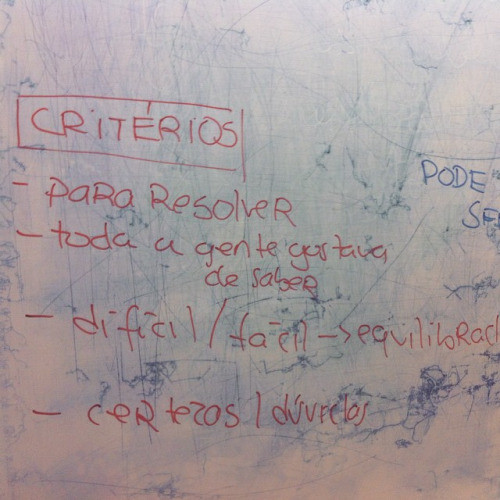 CRITÉRIOS
- PARA ResolveR
- toda a gente gostava
de sabeR
- difícil / fácil -> equilibRad
- ceRtezas / dúvidas
PODE
SE